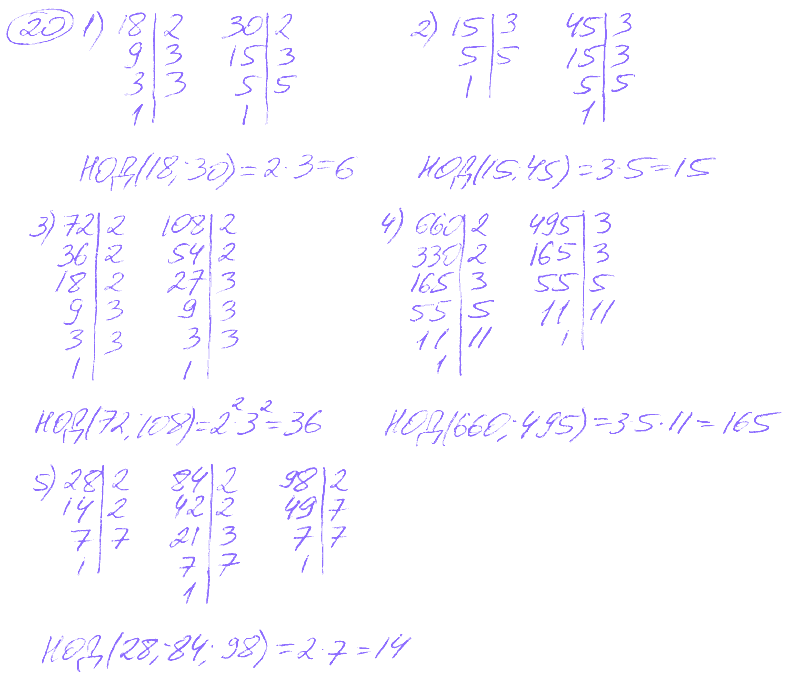 20 1) 18 | 2 30 | 2 2) 15 | 3 45 | 3
9 | 3 15 | 3 5 | 5 15 | 3
3 | 3 5 | 5 1 | 5 | 5
1 | 1 | 1 |
НОД(18; 30) = 2 · 3 = 6 НОД(15; 45) = 3 · 5 = 15
3) 72 | 2 108 | 2 4) 660 | 2 495 | 3
36 | 2 54 | 2 330 | 2 165 | 3
18 | 2 27 | 3 165 | 3 55 | 5
9 | 3 9 | 3 55 | 5 11 | 11
3 | 3 3 | 3 11 | 11 1 |
1 | 1 | 1 |
НОД(72; 108) = 2² · 3² = 36 НОД(660; 495) = 3 5 · 11 = 165
5) 28 | 2 84 | 2 98 | 2
14 | 2 42 | 2 49 | 7
7 | 7 21 | 3 7 | 7
1 | 7 | 7 1 |
1 |
НОД(28; 84; 98) = 2 · 7 = 14